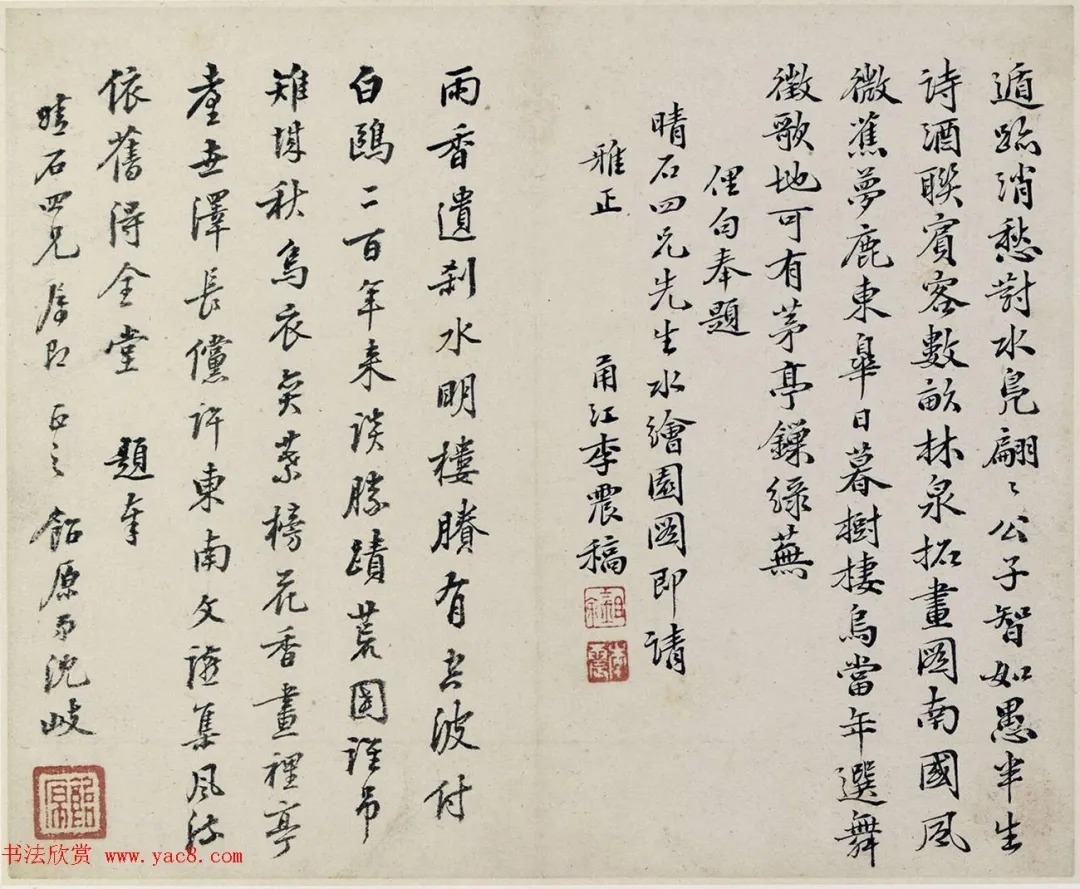 遁跡消愁對水鳧翩〻公子智如愚半生
詩酒聯賓客數畝林泉拓畫圖南國風
微蕉夢鹿東皋日暮樹棲烏當年選舞
徵歌地可有茅亭鏁綠蕪
俚句奉題
晴石四兄先生水繪園圖即請
雅正
甬江李震稿
雨香遺刹水明樓賸有空波付
白鷗二百年來談勝蹟荒園誰弔
雉城秋烏衣奕葉榜花香畫裡亭
臺世澤長儻許東南文讌集風流
依舊得全堂 題奉
晴石四兄屬即正之 飴原弟沈岐
飴原
书法欣赏 www.yac8.com